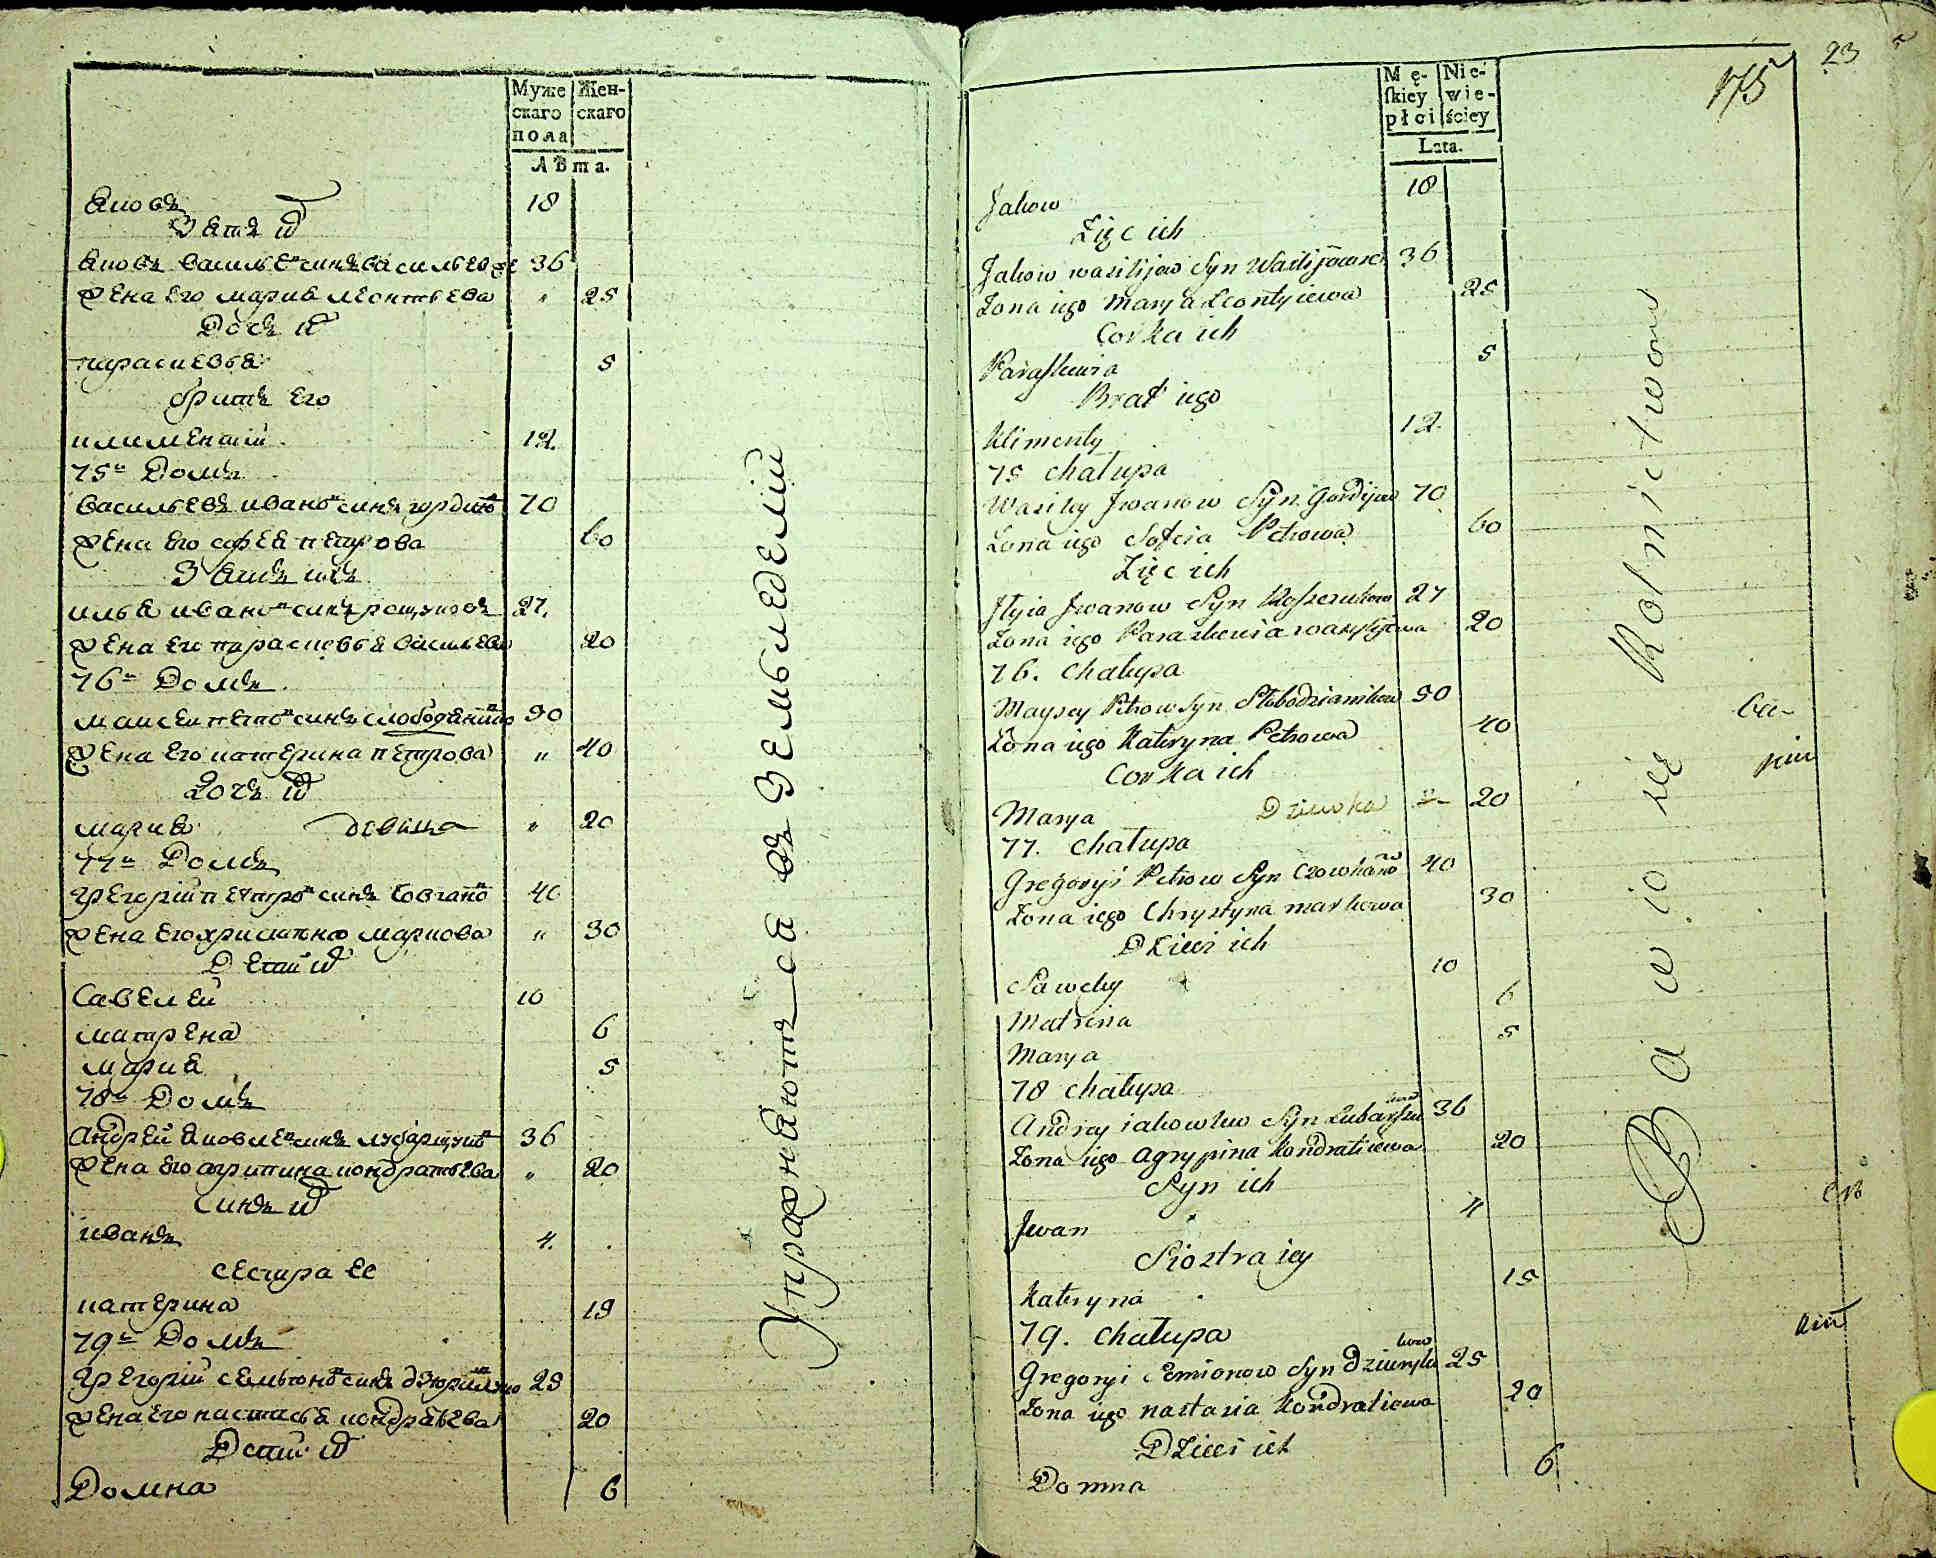 Муже Жен-
скаго скаго
пола
Лѣта.
Яковъ 18
Зять их
Яковъ Василье синъ Васильев 36
Жена его Мария Леонтьева " 25
Дочъ их
Парасковья 5
братъ Его
Климентий 12.
75й Домъ
Васильевъ Ивано синъ Гордий 70
Жена Его Софея Петрова 60
Зять ихъ
Илья Ивано синъ 27.
Жена Его Парасковья Василева 20
76й Домъ
Моисей Петро синъ Слободянико 50
Жена Его Катерина Петрова " 40
Дочъ их
Мария девица " 20
77й Домъ
Григорий Петро синъ Човгано 40
Жена Его Христина Маркова " 30
Дети их
Савелей 10
Матрена 6
Мария 5
78й Домъ
Андрей Яковле синъ 36
Жена Его Агрипина Кондратьева " 20
Синъ их
Иванъ 4.
Сестра Ее
Катерина 15
79й Домъ
Григорий Семьоно синъ 25
Жена Его Настася Кондратьева 20
Дети их
Домна 6
Упражняются въ Земльеделии
23
175
Mę- Nie-
ſkiey wie-
płci ściey
Lata.
Jakow 18
Zięc ich
Jakow wasilijow Syn Wasilijow 36
Żona iego Marya Leontyiewa 25
Corka ich
Paraskiewia 5
Brat iego
Klimenty 12.
75 chałupa
Wasiley Jwanow Syn Gordijow 70
Żona iego Sofcia Petrowa 60
Zięc ich
Jlyia Jwanow Syn 27
Żona iego Paraskiewia wasylijewa 20
76. chałupa
Moysey Petrow Syn Słobodzianikow 50
Żona iego Kateryna Petrowa 40
Corka ich
Marya Dziewka " 20
77. chałupa
Gregoryi Petrow Syn Czowhanow 40
Żona iego Chrystyna markowa 30
Dzieci ich
Sawely 10
Matrena 6
Marya 5
78 chałupa
Andrey iakowlew Syn 36
Żona iego Agrypina Kondratiewa 20
Syn ich
Jwan 4
Siostra iey
Kateryna 15
79. chałupa
Gregoryi Semionow Syn 25
Żona iego nastasia Kondratiewa 20
Dzieci ich
Domna 6
Bawio się Rolnictwom